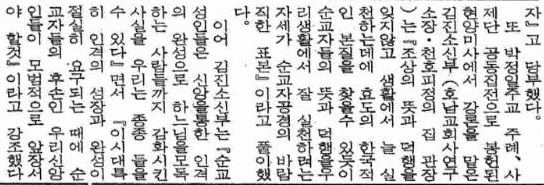 자』고 당부했다.
또 박정일주교 주례、사
제단 공동집전으로 봉헌된
현양미사에서 강론을 맡은
김진소신부(호남교회사연구
소장·천호피정의 집 관장
)는『조상의 뜻과 덕행을
잊지않고 생활에서 늘 실
천하는데에 효도의 한국적
인 본질을 찾을수 있듯이
순교자들의 뜻과 덕행을우
리생활에서 잘 실천하려는
자세가 순교자공경의 바람
직한 표본』이라고 풀이했
다.
이어 김진소신부는『순교
성인들은 신앙을통한 인격
의 완성으로 하느님을모독
하는 사람들까지 감화시킨
사실을 우리는 종종 들을
수 있다』면서 『이시대특
히 인격의 성장과 완성이
절실히 요구되는 때에 순
교자들의 후손인 우리신앙
인들이 모범적으로 앞장서
야 할것』이라고 강조했다